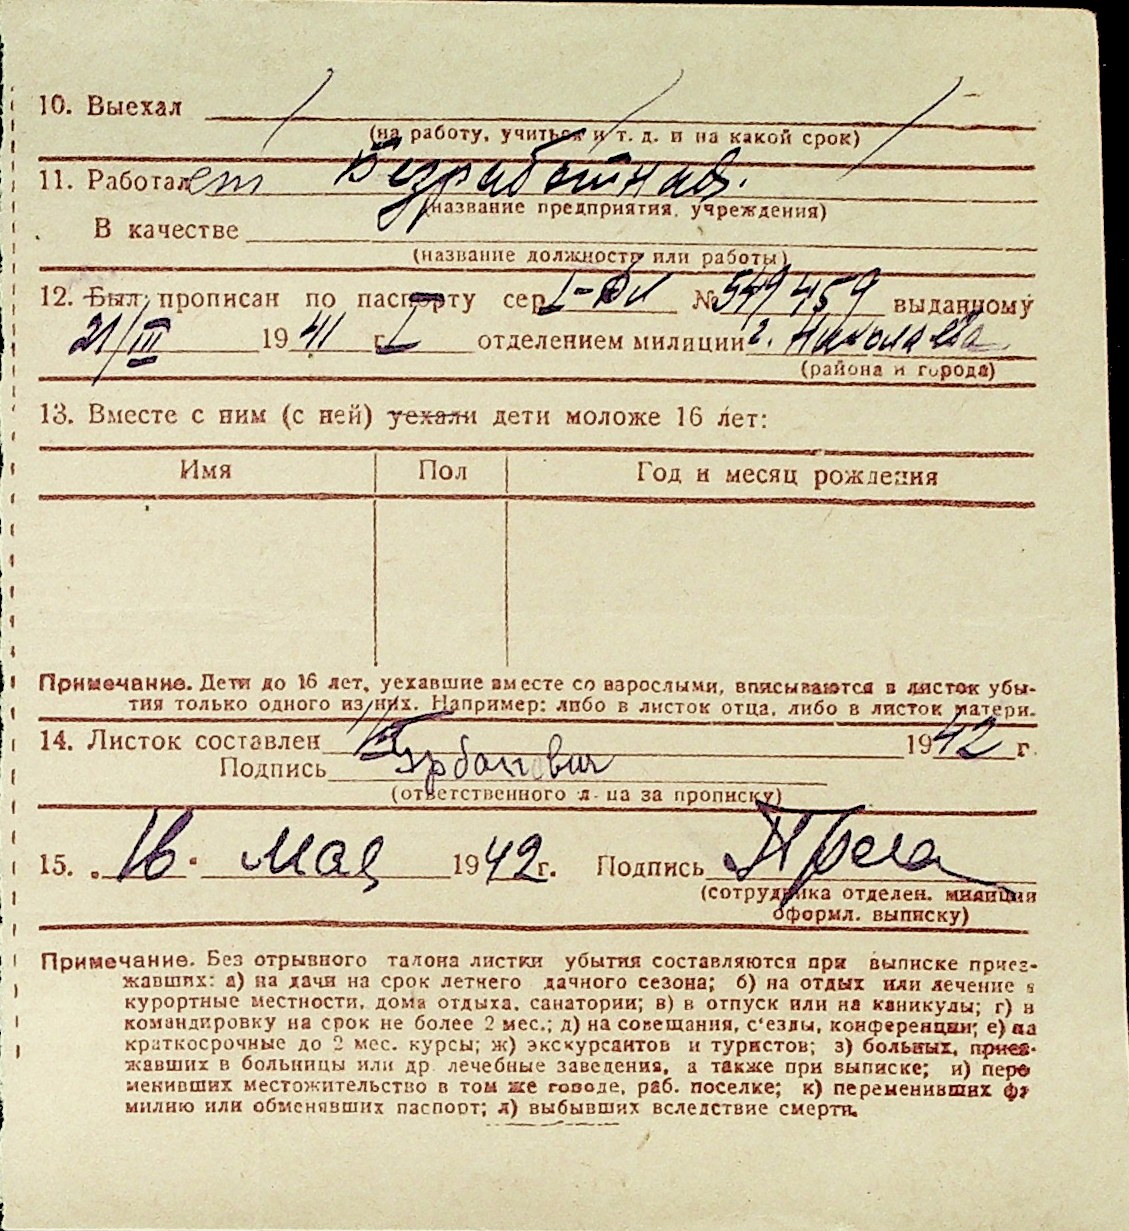 10. Выехал
(на работу, учиться и т. д. и на какой срок)
11. Работает Безработная.
(название предприятия, учреждения)
В качестве
(название должности или работы)
12. Был прописан по паспорту сер. I-ДИ № 549459 выданному
21/III 1941 г. I отделением милиции г. Николаева
(района и города)
13. Вместе с ним (с ней) уехали дети моложе 16 лет:
Имя Пол Год и месяц рождения
Примечание. Дети до 16 лет, уехавшие вместе со взрослыми, вписываются в листок убы-
тия только одного из них. Например: либо в листок отца, либо в листок матери.
14. Листок составлен 1942 г.
Подпись Урбанович
(ответственного л-ца за прописку)
15. „16. Мая 1942 г. Подпись
(сотрудника отделен. милиции
оформл. выписку)
Примечание. Без отрывного талона листки убытия составляются при выписке приез-
жавших: а) на дачи на срок летнего дачного сезона; б) на отдых или лечение в
курортные местности, дома отдыха, санатории; в) в отпуск или на каникулы; г) в
командировку на срок не более 2 мес.; д) на совещания, с'езды, конференции; е) на
краткосрочные до 2 мес. курсы; ж) экскурсантов и туристов; з) больных, приез-
жавших в больницы или др. лечебные заведения, а также при выписке; и) пере
менивших местожительство в том же городе, раб. поселке; к) переменивших фа
милию или обменявших паспорт; л) выбывших вследствие смерти.